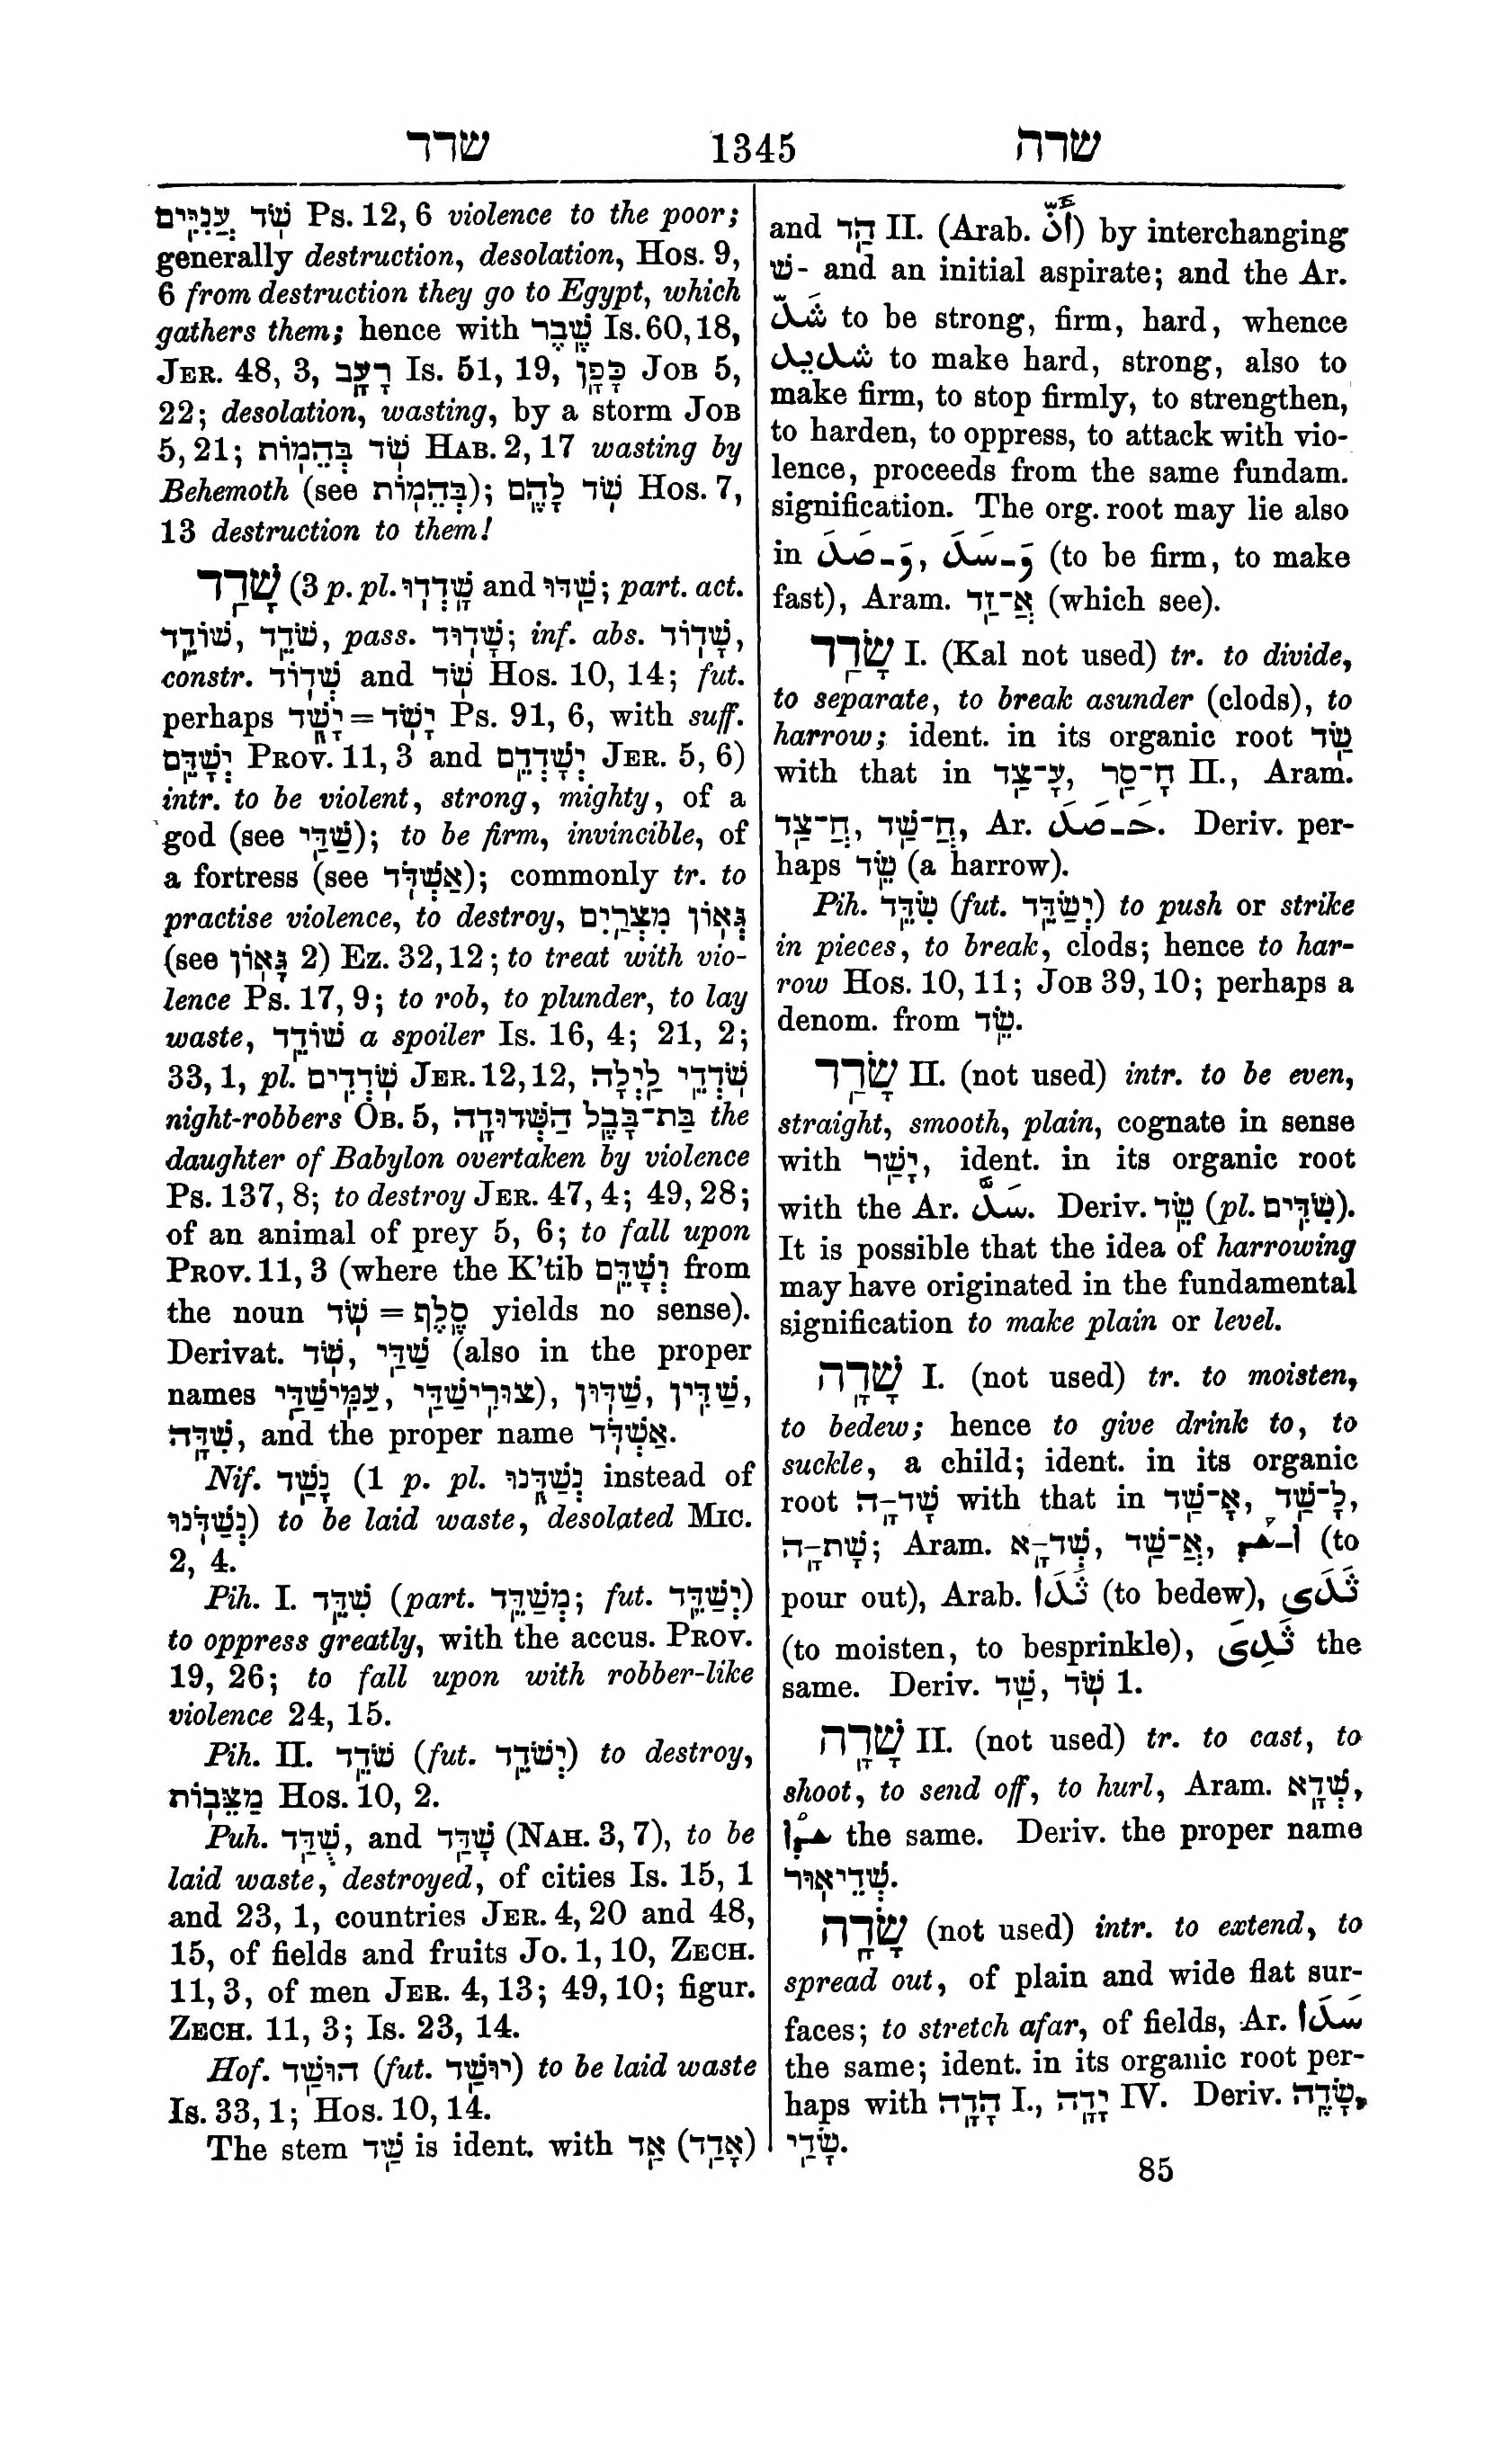 שדד 1345 שדה
שֹׁד עֲנִיִּים Ps. 12, 6 violence to the poor;
generally destruction, desolation, Hos. 9,
6 from destruction they go to Egypt, which
gathers them; hence with שֶׁבֶר Is. 60, 18,
Jer. 48, 3, רָעָב Is. 51, 19, כָּפָן Job 5,
22; desolation, wasting, by a storm Job
5, 21; שֹׁד בְּהֵמוֹת Hab. 2, 17 wasting by
Behemoth (see בְּהֵמוֹת); שֹׁד לָהֶם Hos. 7,
13 destruction to them!
שָׁדַד (3 p. pl. שָׁדְדוּ and שַׁדּוּ; part. act.
שֹׁדֵד, שׁוֹדֵד, pass. שָׁדוּד; inf. abs. שָׁדוֹד,
constr. שְׁדוֹד and שֹׁד Hos. 10, 14; fut.
perhaps יָשֹׁד = יָשׁוּד Ps. 91, 6, with suff.
יְשָׁדֵּם Prov. 11, 3 and יְשָׁדְדֵם Jer. 5, 6)
intr. to be violent, strong, mighty, of a
god (see שַׁדַּי); to be firm, invincible, of
a fortress (see אַשְׁדֹּד); commonly tr. to
practise violence, to destroy, גְּאוֹן מִצְרַיִם
(see גָּאוֹן 2) Ez. 32, 12; to treat with vio-
lence Ps. 17, 9; to rob, to plunder, to lay
waste, שׁוֹדֵד a spoiler Is. 16, 4; 21, 2;
33, 1, pl. שֹׁדְדִים Jer. 12, 12, שֹׁדְדֵי לַיְלָה
night-robbers Ob. 5, בַּת־בָּבֶל הַשְּׁדוּדָה the
daughter of Babylon overtaken by violence
Ps. 137, 8; to destroy Jer. 47, 4; 49, 28;
of an animal of prey 5, 6; to fall upon
Prov. 11, 3 (where the K'tib וְשָׁדֵּם from
the noun שֹׁד = סֶלֶף yields no sense).
Derivat. שֹׁד, שַׁדַּי (also in the proper
names עַמִּישַׁדַּי, צוּרִישַׁדַּי), שַׁדּוּן, שַׁדִּין,
שִׁדָּה, and the proper name אַשְׁדֹּד.
Nif. נָשַׁד (1 p. pl. נְשַׁדֻּנוּ instead of
נְשַׁדֹּנוּ) to be laid waste, desolated Mic.
2, 4.
Pih. I. שִׁדֵּד (part. מְשַׁדֵּד; fut. יְשַׁדֵּד)
to oppress greatly, with the accus. Prov.
19, 26; to fall upon with robber-like
violence 24, 15.
Pih. II. שֹׁדֵד (fut. יְשֹׁדֵד) to destroy,
מַצֵּבוֹת Hos. 10, 2.
Puh. שֻׁדַּד, and שָׁדַּד (Nah. 3, 7), to be
laid waste, destroyed, of cities Is. 15, 1
and 23, 1, countries Jer. 4, 20 and 48,
15, of fields and fruits Jo. 1, 10, Zech.
11, 3, of men Jer. 4, 13; 49, 10; figur.
Zech. 11, 3; Is. 23, 14.
Hof. הוּשַׁד (fut. יוּשַׁד) to be laid waste
Is. 33, 1; Hos. 10, 14.
The stem שַׁד is ident. with אַד (אָדַד)
and הַד II. (Arab. أدّ) by interchanging
שׁ- and an initial aspirate; and the Ar.
شَدّ to be strong, firm, hard, whence
شديد to make hard, strong, also to
make firm, to stop firmly, to strengthen,
to harden, to oppress, to attack with vio-
lence, proceeds from the same fundam.
signification. The org. root may lie also
in وَ-صَدَ, وَ-سَدَ (to be firm, to make
fast), Aram. אֲ־זַד (which see).
שָׂדַד I. (Kal not used) tr. to divide,
to separate, to break asunder (clods), to
harrow; ident. in its organic root שַׂד
with that in עָ־צַד, חָ־סַר II., Aram.
חֲ־צַד, חֲ־שַׁד, Ar. حَ-صَدَ. Deriv. per-
haps שֵׂד (a harrow).
Pih. שִׂדֵּד (fut. יְשַׂדֵּד) to push or strike
in pieces, to break, clods; hence to har-
row Hos. 10, 11; Job 39, 10; perhaps a
denom. from שֵׂד.
שָׂדַד II. (not used) intr. to be even,
straight, smooth, plain, cognate in sense
with יָשַׁר, ident. in its organic root
with the Ar. سَدَّ. Deriv. שֵׂד (pl. שִׂדִּים).
It is possible that the idea of harrowing
may have originated in the fundamental
signification to make plain or level.
שָׁדָה I. (not used) tr. to moisten,
to bedew; hence to give drink to, to
suckle, a child; ident. in its organic
root שָׁדָ־ה with that in אָ־שַׁד, לָ־שַׁד,
שָׁתָ־ה; Aram. שְׁדָ־א, אֲ־שַׁד, (to
pour out), Arab. ثَدَا (to bedew), ثَدَى
(to moisten, to besprinkle), ثَدِىَ the
same. Deriv. שַׁד, שֹׁד 1.
שָׁדָה II. (not used) tr. to cast, to
shoot, to send off, to hurl, Aram. שְׁדָא,
ܫܕܐ the same. Deriv. the proper name
שְׁדֵיאוּר.
שָׂדָה (not used) intr. to extend, to
spread out, of plain and wide flat sur-
faces; to stretch afar, of fields, Ar. سَدَا
the same; ident. in its organic root per-
haps with הָדָה I., יָדָה IV. Deriv. שָׂדֶה,
שָׂדַי.
85